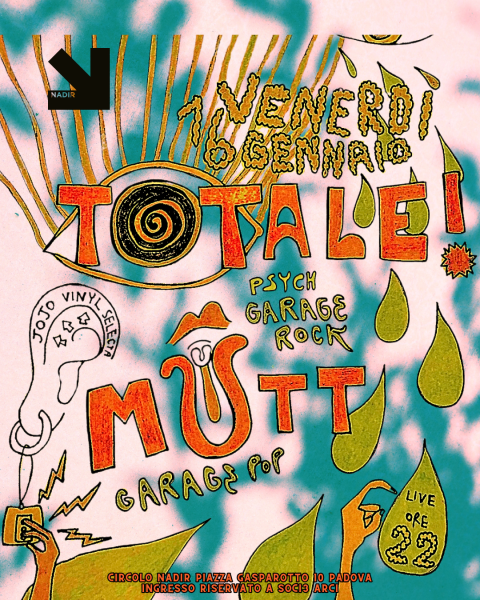 NADIR
VENERDÌ
16 GENNAIO
TOTALE!
PSYCH
GARAGE
ROCK
JOJO VINYL SELECTA
MUTT
GARAGE POP
LIVE
ORE
22
CIRCOLO NADIR PIAZZA GASPAROTTO 10 PADOVA
INGRESSO RISERVATO A SOCI3 ARCI